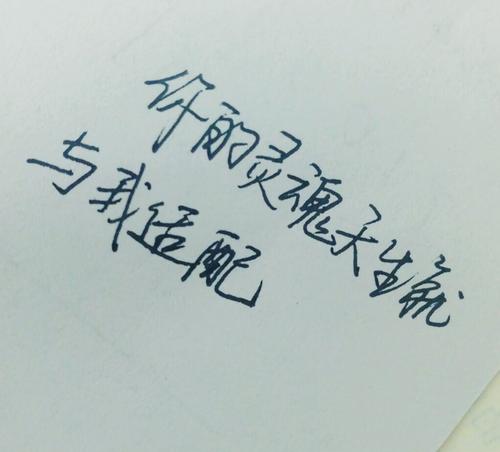 你的灵魂天生就
与我适配